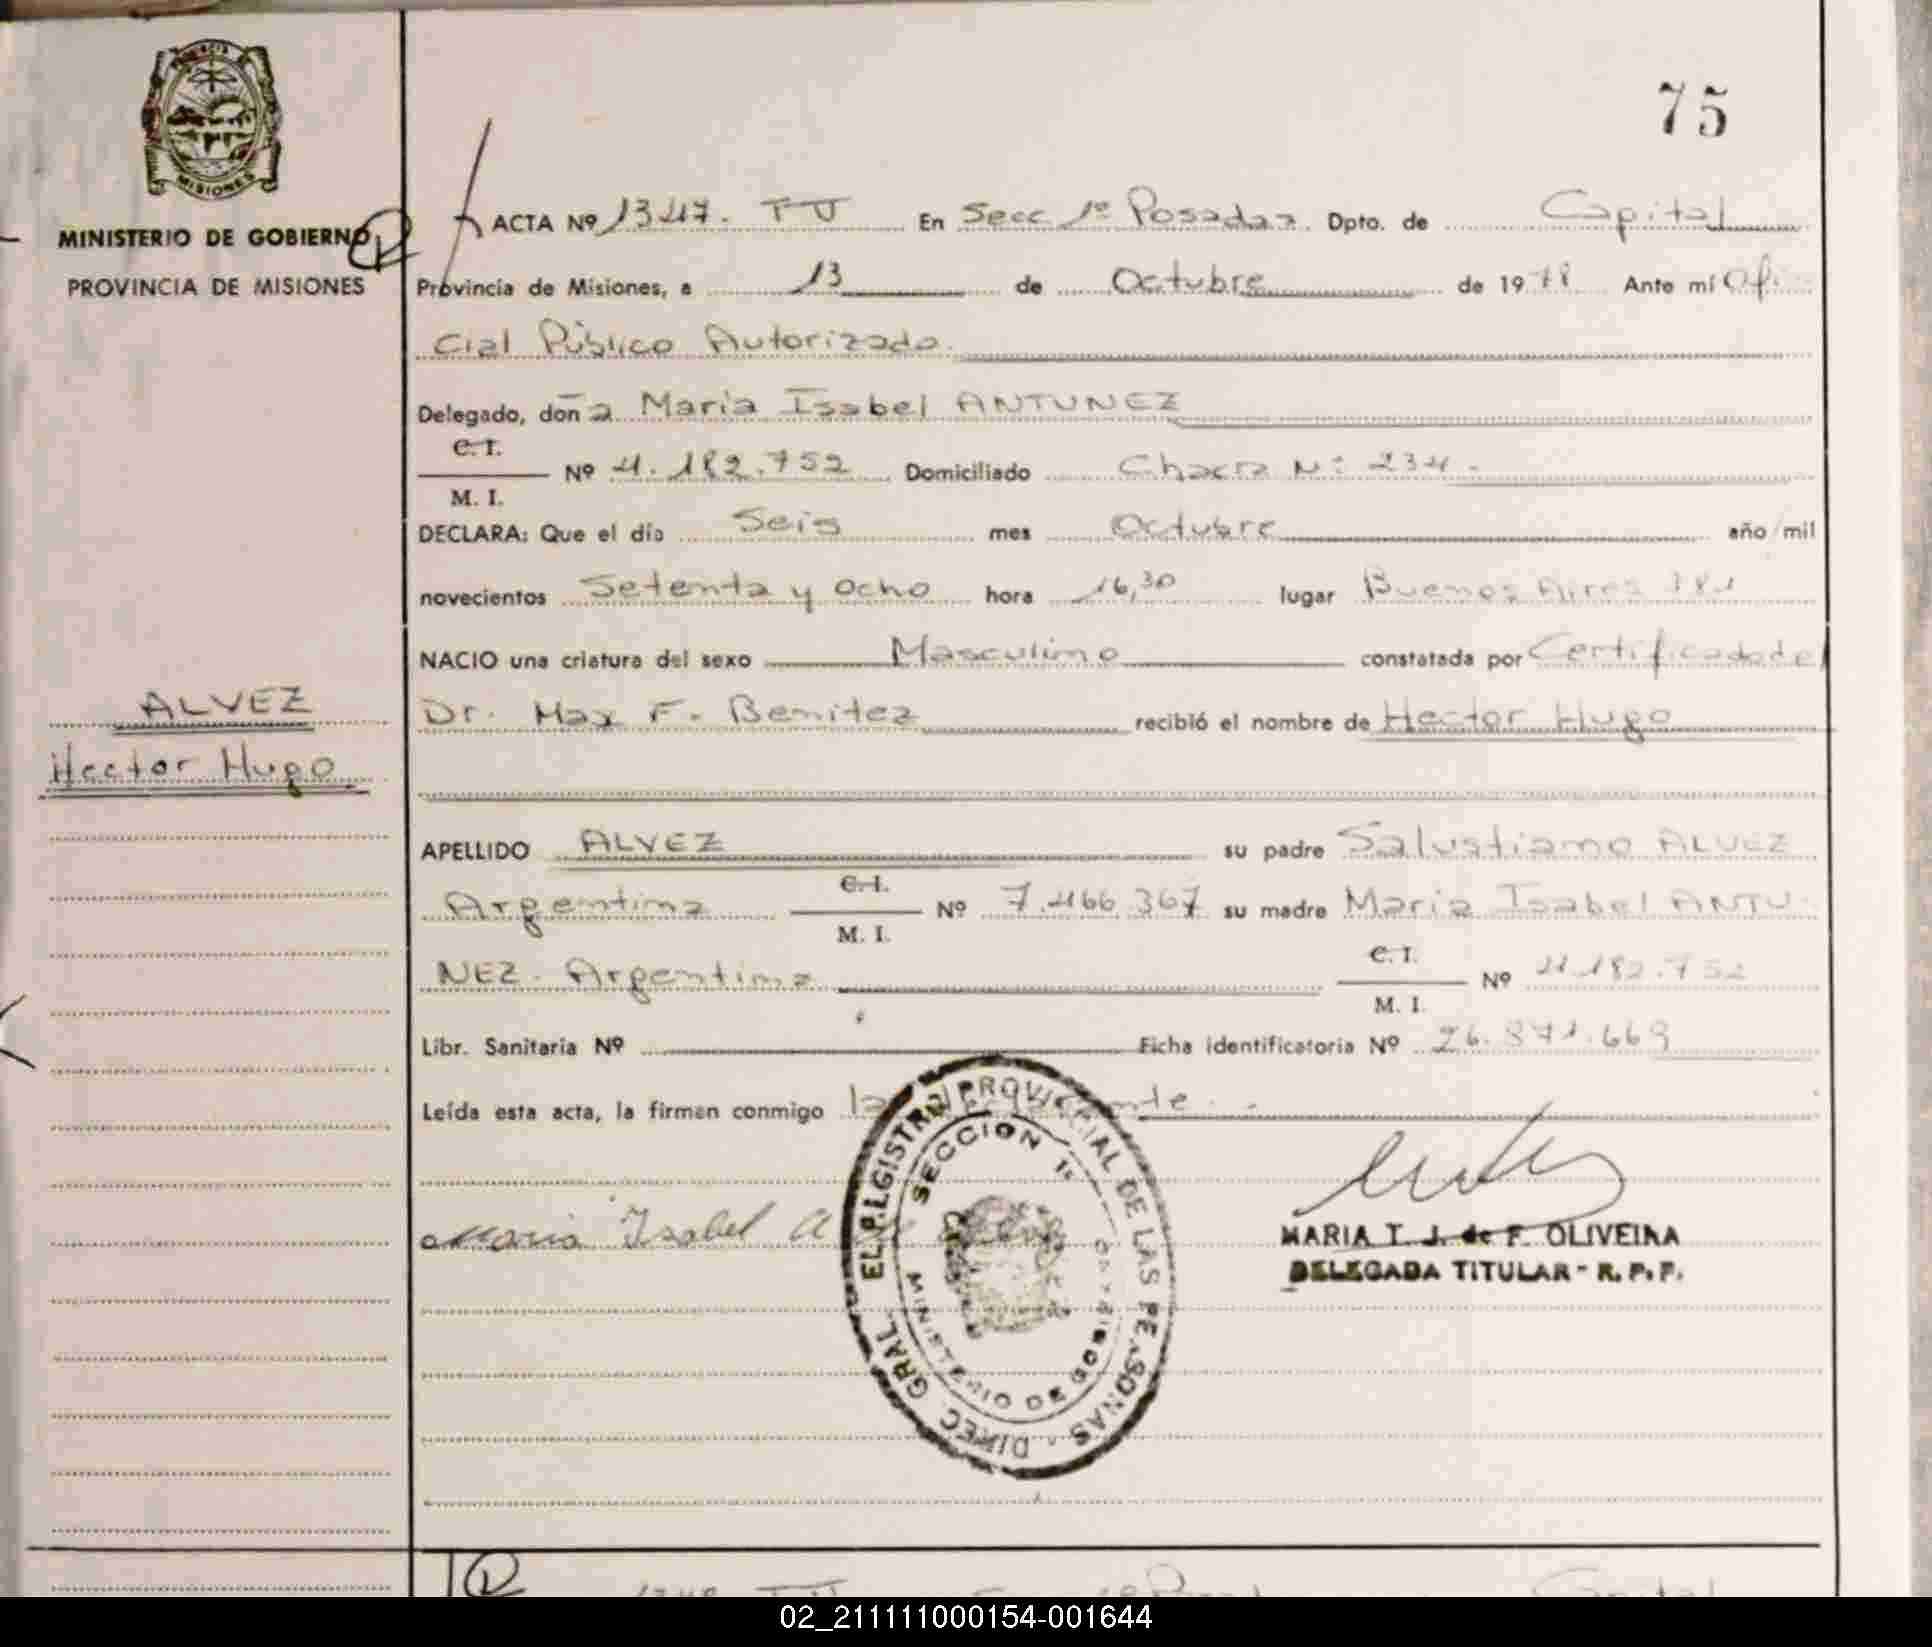 75
MISIONES
MINISTERIO DE GOBIERNO
PROVINCIA DE MISIONES
ACTA Nº 1347. TU En Secc 1º Posadas. Dpto. de Capital
Provincia de Misiones, a 13 de Octubre de 1978 Ante mí Ofi-
cial Público Autorizado.
Delegado, don a Maria Isabel ANTUNEZ
C. I.
M. I.
Nº 4.182.752 Domiciliado Chacra Nº 234.
DECLARA: Que el día Seis mes Octubre año mil
novecientos Setenta y ocho hora 16,30 lugar Buenos Aires
NACIO una criatura del sexo Masculino constatada por Certificado del
ALVEZ
Dr. Max F. Benitez recibió el nombre de Hector Hugo
Hector Hugo
APELLIDO ALVEZ su padre Salustiano ALVEZ
Argentina C. I. M. I. Nº 7.466.367 su madre Maria Isabel ANTU-
NEZ- Argentina C. I. M. I. Nº 4.182.752
Libr. Sanitaria Nº Ficha identificatoria Nº 26.871.669
Leída esta acta, la firman conmigo
Maria Isabel A
MARIA T. J. de F. OLIVEIRA
DELEGADA TITULAR - R. P. P.
DIREC. GRAL. DEL REGISTRO PROVINCIAL DE LAS PERSONAS
SECCION 1ª
MINISTERIO DE GOBIERNO
02_211111000154-001644